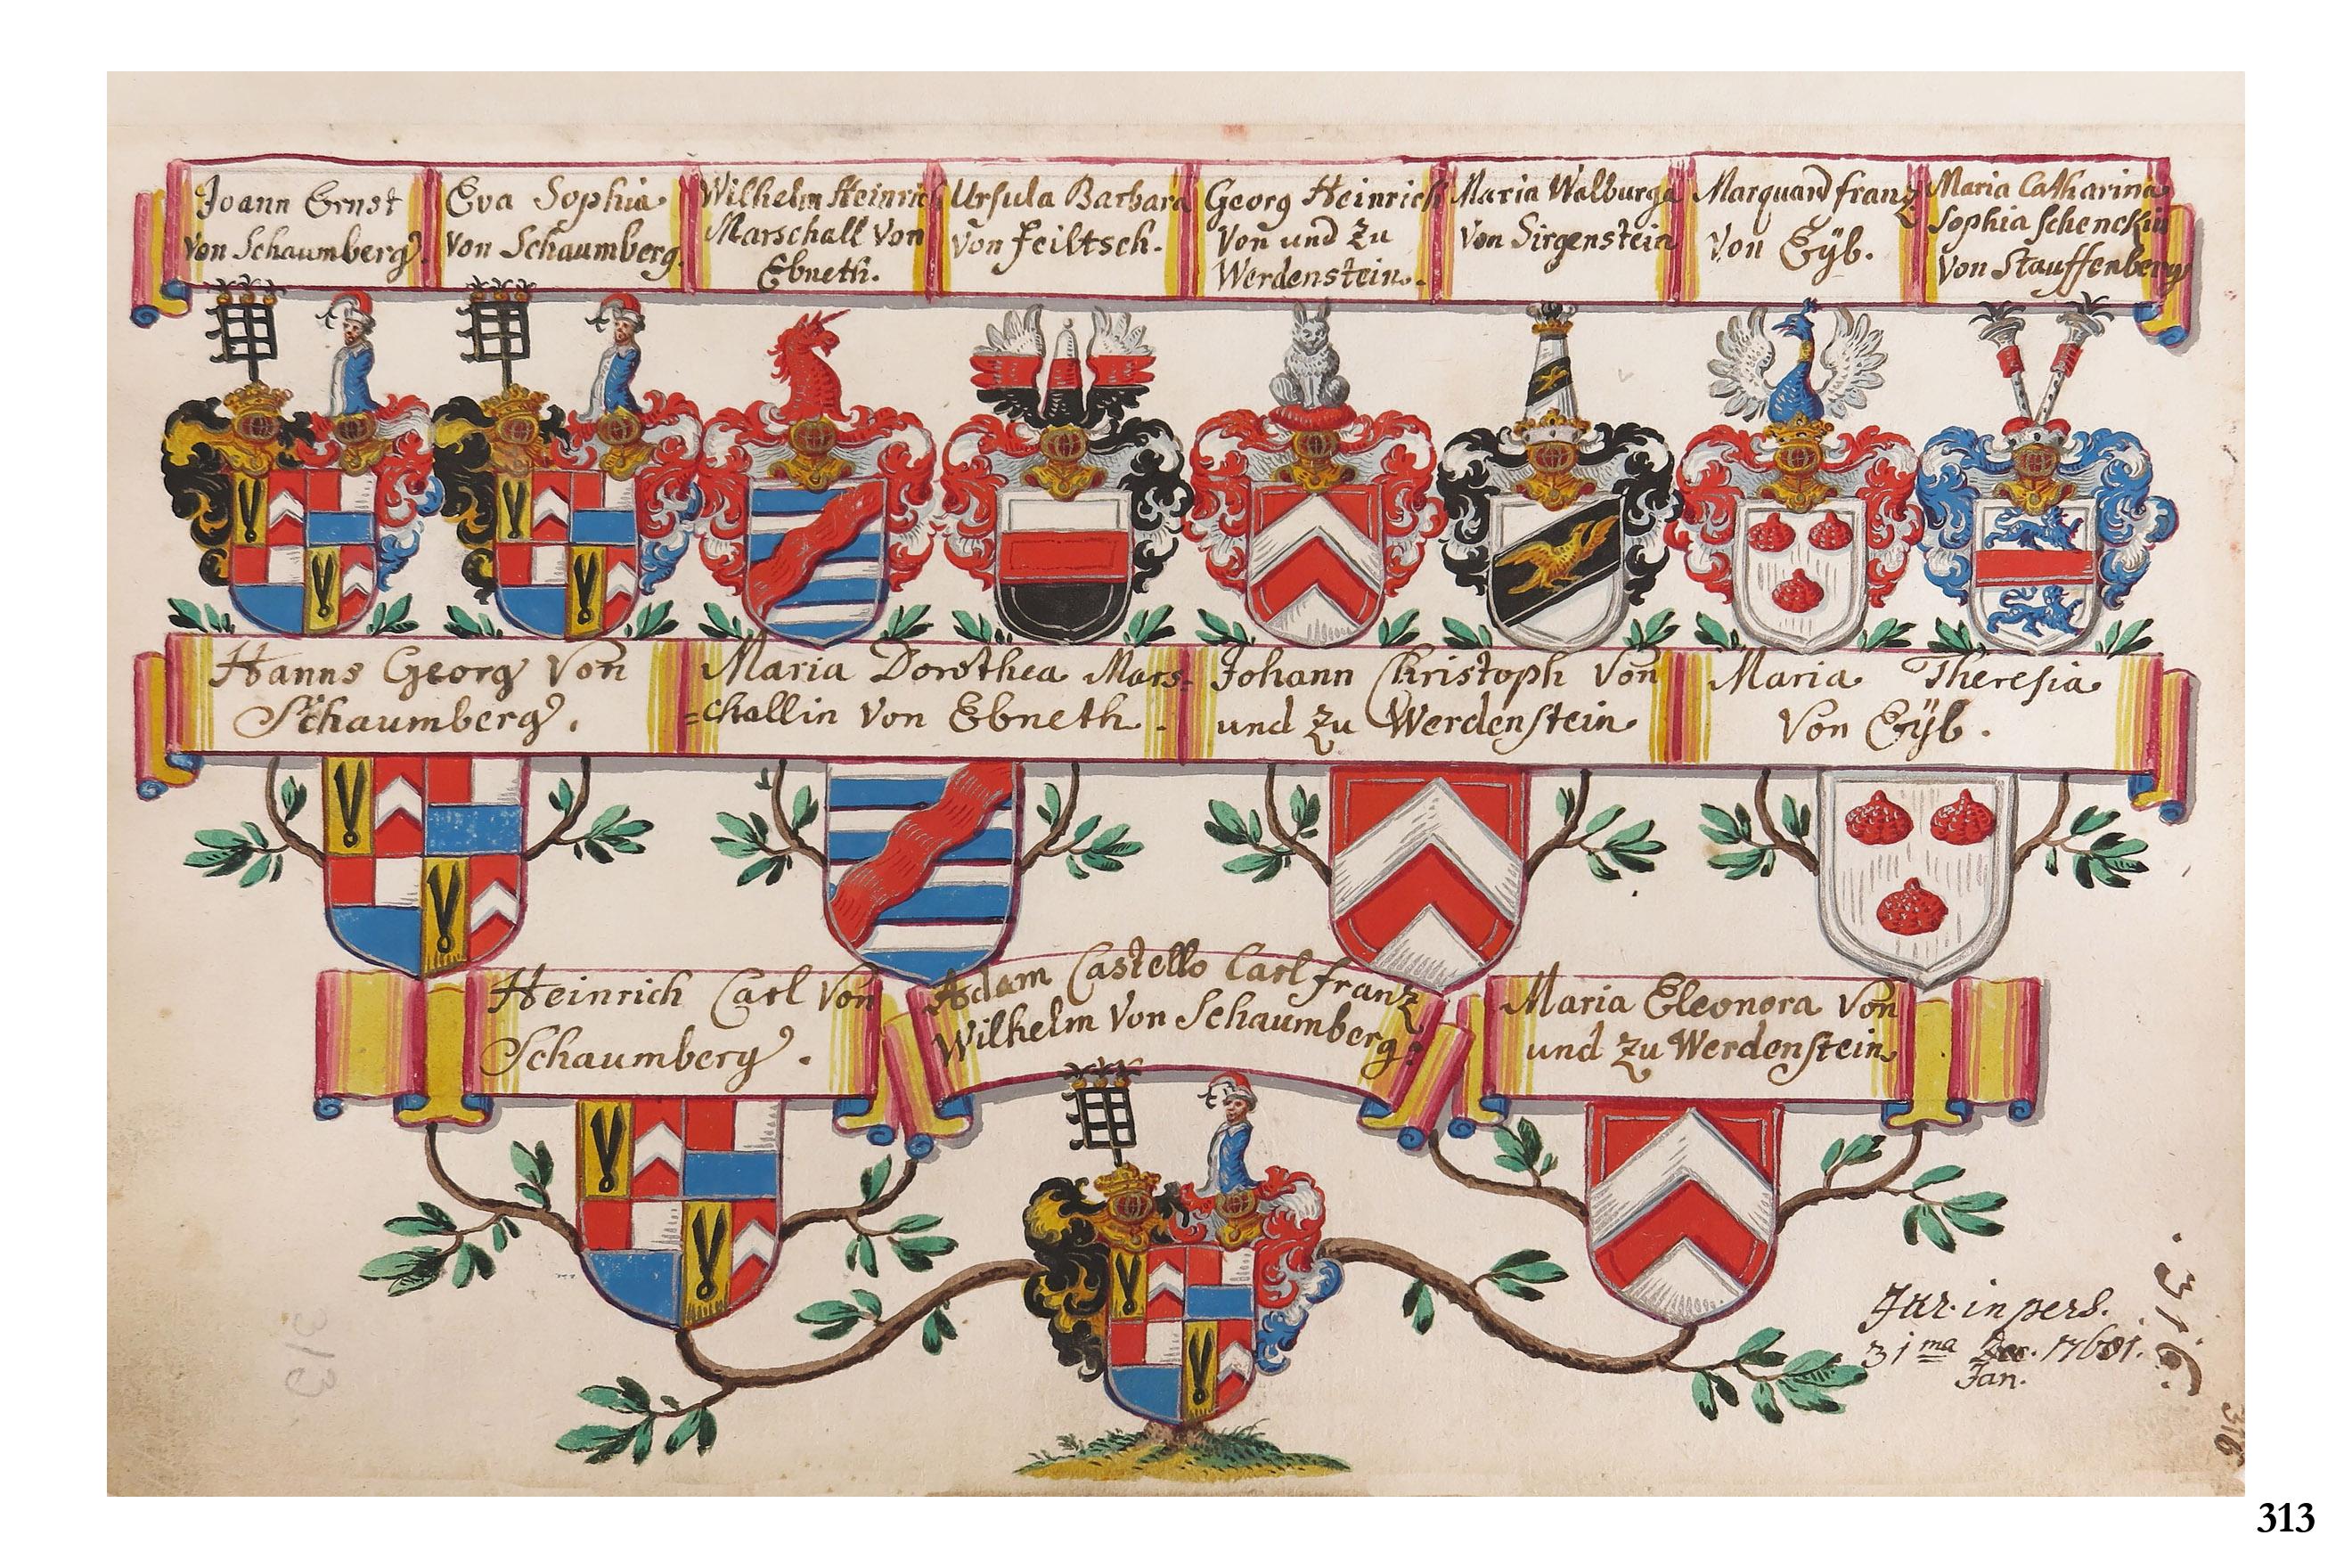 Joann Ernst
von Schaumberg.
Eva Sophia
von Schaumberg.
Wilhelm Heinrich
Marschall von
Ebneth.
Ursula Barbara
von Feiltsch.
Georg Heinrich
von und zu
Werdenstein.
Maria Walburga
von Sirgenstein
Marquard franz
von Eÿb.
Maria Catharina
Sophia Schenckin
von Stauffenberg
Hanns Georg von
Schaumberg.
Maria Dorothea Mars=
=challin von Ebneth.
Johann Christoph von
und zu Werdenstein
Maria Theresia
von Eÿb.
Heinrich Carl von
Schaumberg.
Adam Castello Carl franz
Wilhelm von Schaumberg:
Maria Eleonora von
und zu Werdenstein
Jur. in pers.
31ma
Jan.
316.
316
313
313